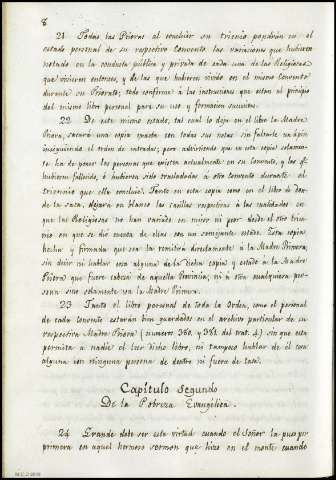 8
21 Todas las Prioras al concluir su trienio pondrán en el
estado personal de su respectivo Convento las variaciones que hubieren
notado en la conducta pública y privada de cada una de las Religiosas
que vivieren entonces, y de las que hubieren vivido en el mismo Convento
durante su Priorato; todo conforme á las instrucciones que están al principio
del mismo libro personal para su uso y formacion sucesiva.
22 De este mismo estado, tal cual lo deja en el libro la Madre
Priora, sacará una copia exacta con todas sus notas sin faltarle un ápice
siguiendo el orden de entradas; pero advirtiendo que en esta copia solamen-
te ha de poner las personas que existen actualmente en su Convento, y las q.e
hubieren fallecido, ó hubieren sido trasladadas á otro Convento durante el
trienio que ella concluye. Tanto en esta copia como en el libro de don-
de la saca, dejará en blanco las casillas respectivas á las cualidades en
que las Religiosas no han variado en mejor ni peor desde el otro trie-
nio en que se dió cuenta de ellas con un semejante estado. Esta copia
hecha y firmada que sea la remitirá directamente á la Madre Primera,
sin decir ni hablar cosa alguna de la dicha copia y estado á la Madre
Priora que fuere cabeza de aquella Provincia, ni á otra cualquiera per-
sona sino solamente á la Madre Primera.
23 Tanto el libro personal de toda la Orden, como el personal
de cada Convento estarán bien guardados en el archivo particular de su
respectiva Madre Priora (numeros 360. y 361. del trat. 4.) sin que esta
permita á nadie el leer dicho libro, ni tampoco hablar de él cosa
alguna con ninguna persona de dentro ni fuera de Casa.
Capítulo Segundo
De la Pobreza Evangélica.
24 Grande debe ser esta virtud cuando el Señor la puso por
primera en aquel hermoso sermon que hizo en el monte cuando